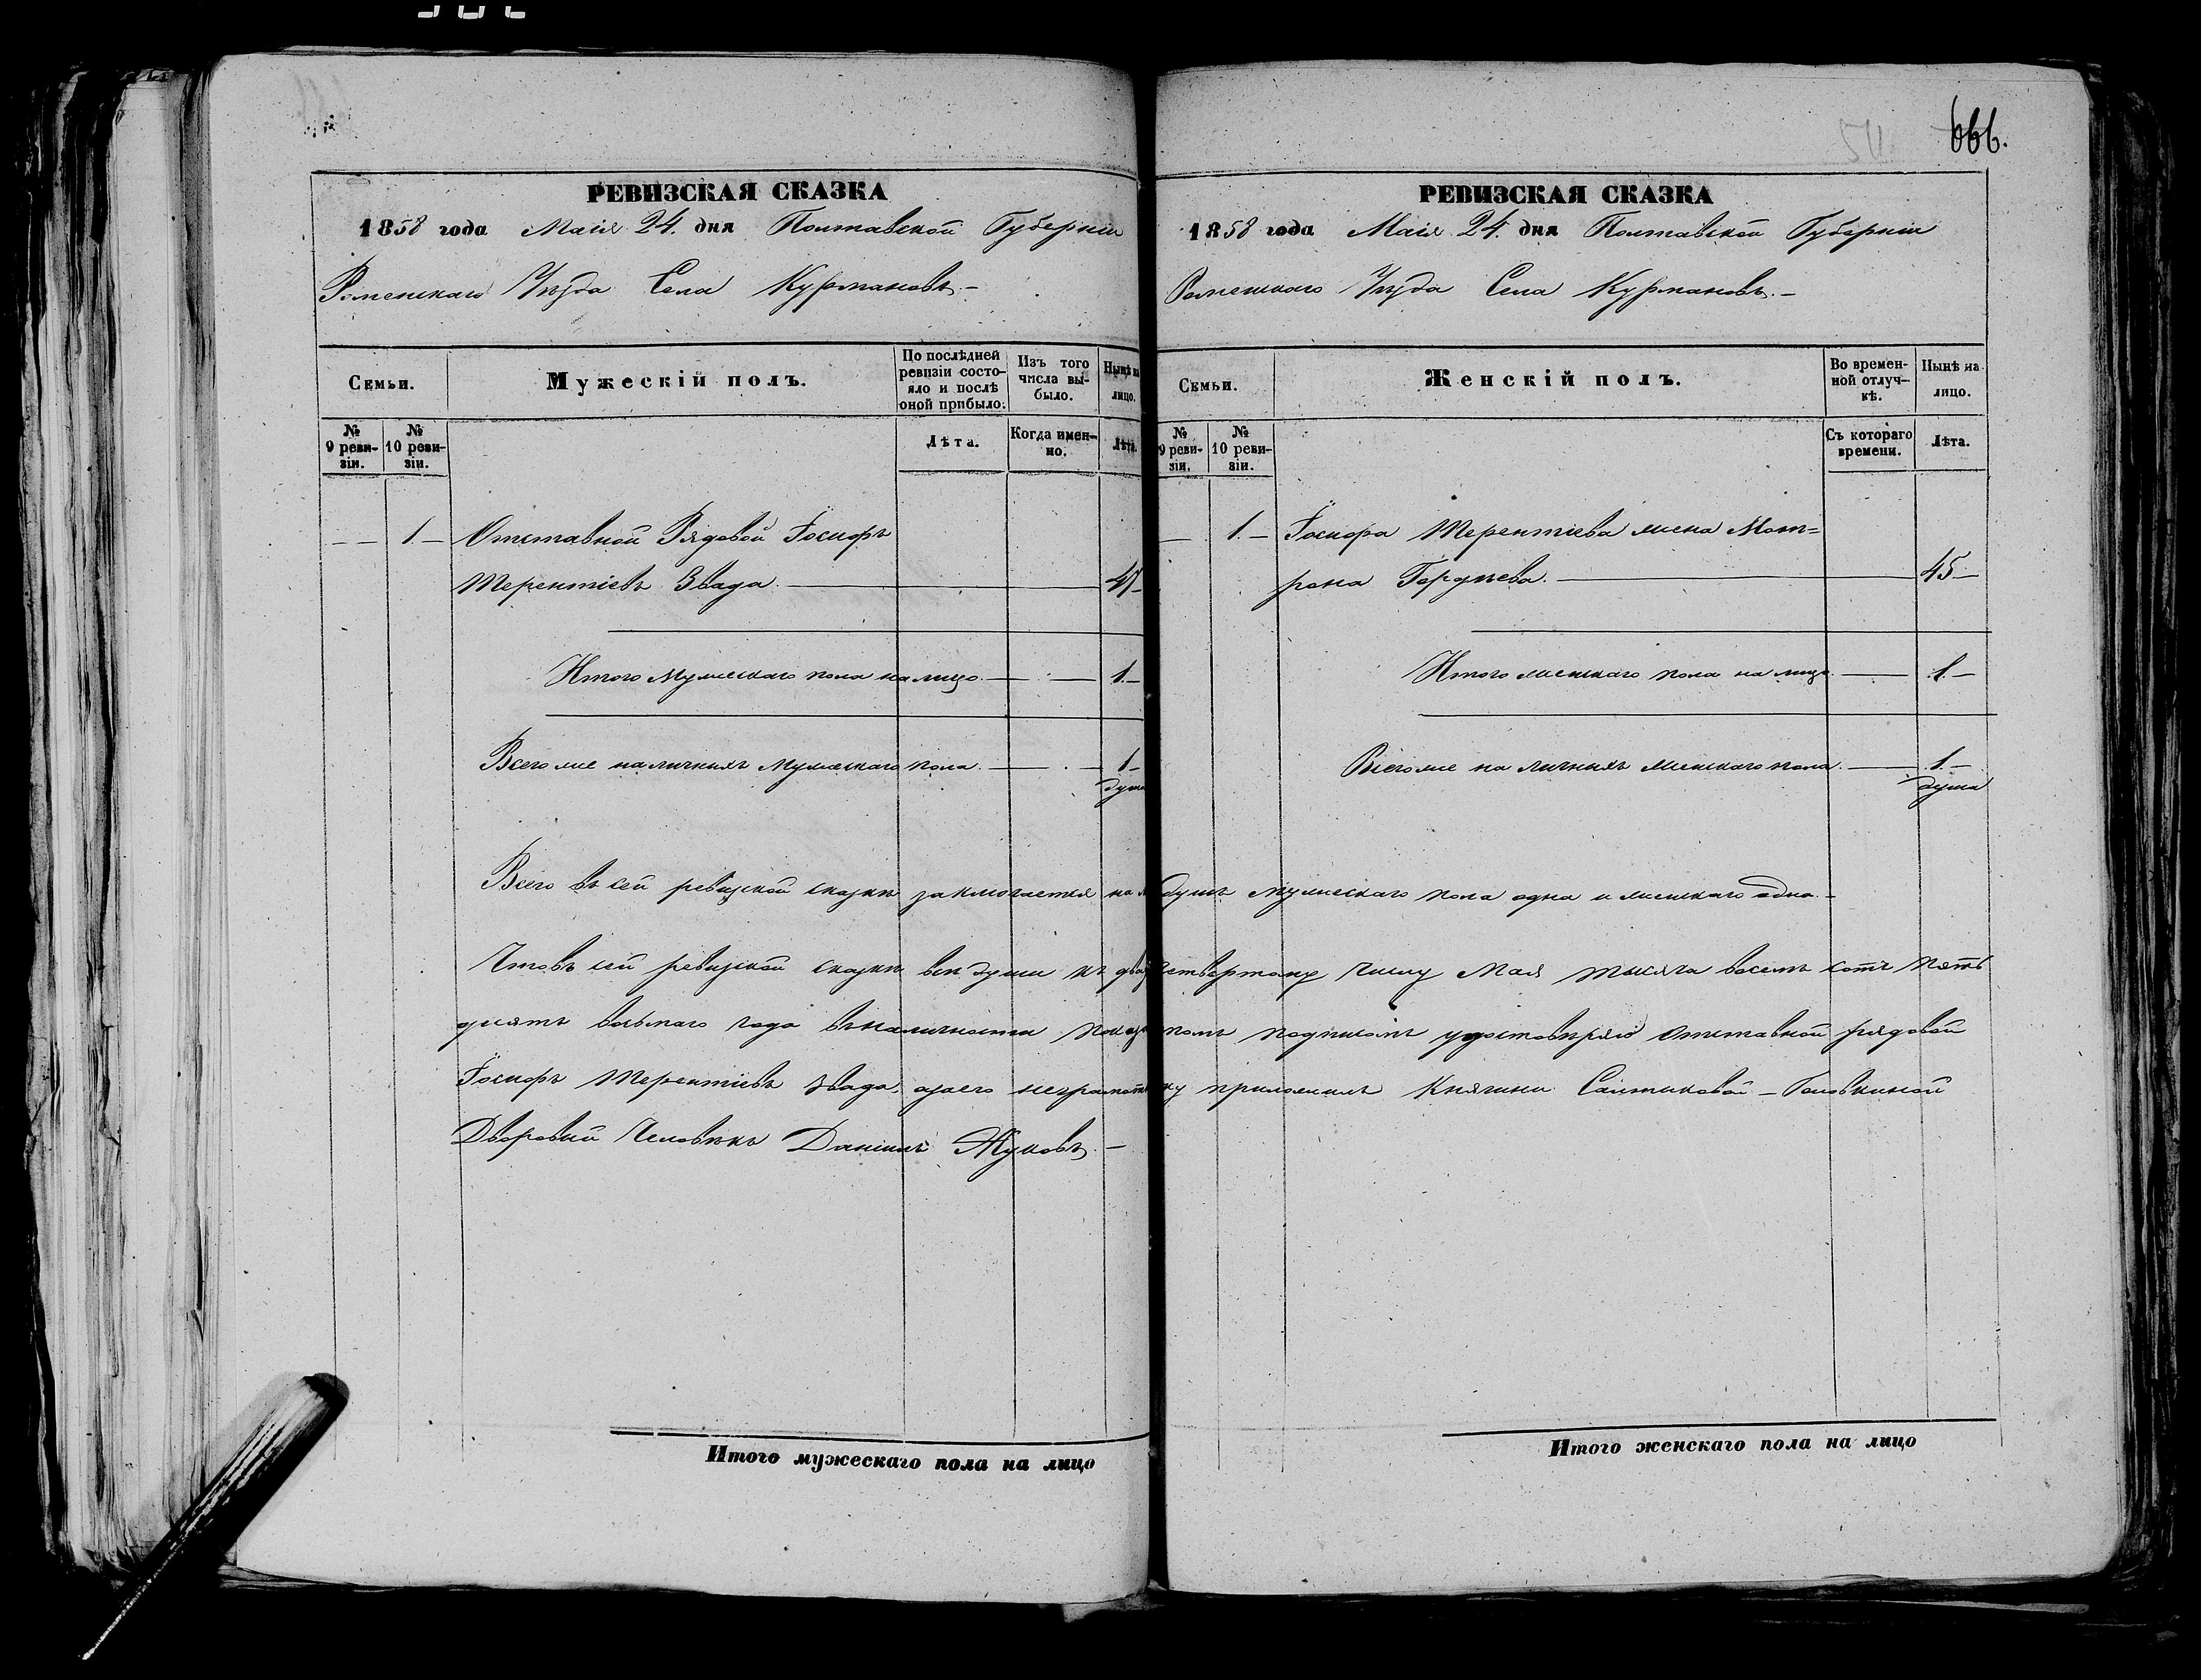 666.
РЕВИЗСКАЯ СКАЗКА
1858 года Маія 24. дня Полтавской Губерніи
Роменскаго Уѣзда Села Курмановъ.—
Семьи.
Мужескій полъ.
По послѣдней ревизіи состояло и послѣ оной прибыло.
Изъ того числа выбыло.
Нынѣ на лицо.
№ 9 ревизіи.
№ 10 ревизіи.
Лѣта.
Когда именно.
Лѣта.
— — 1.— Отставной Рядовой Іосифъ
Терентіевъ Звада.
Итого Мужескаго пола на лицо. — 1.—
Всего же наличныхъ Мужескаго пола. — 1—
душа
РЕВИЗСКАЯ СКАЗКА
1858 года Маія 24. дня Полтавской Губерніи
Роменскаго Уѣзда Села Курмановъ.—
Семьи.
Женскій полъ.
Во временной отлучкѣ.
Нынѣ на лицо.
№ 9 ревизіи.
№ 10 ревизіи.
Съ котораго времени.
Лѣта.
— 1.— Іосифа Терентіева жена Мот=
рона Гордѣева. — 45—
Итого женскаго пола на лицо. — 1.—
Всего же на личныхъ женскаго пола. — 1.—
душа
Всего въ сей ревизской сказкѣ заключается на душъ мужескаго пола одна и женскаго одна.—
Что въ сей ревизской сказкѣ всѣ души къ четвертому числу Мая тысяча восемь сотъ пять
десятъ восьмаго года въ наличности подписомъ удостовѣряю Отставной рядовой
Іосифъ Терентіевъ Звада, а за его приложилъ Княгини Салтыковой—Головкиной
Дворовый Человѣкъ Даніилъ Жуковъ.—
Итого мужескаго пола на лицо
Итого женскаго пола на лицо